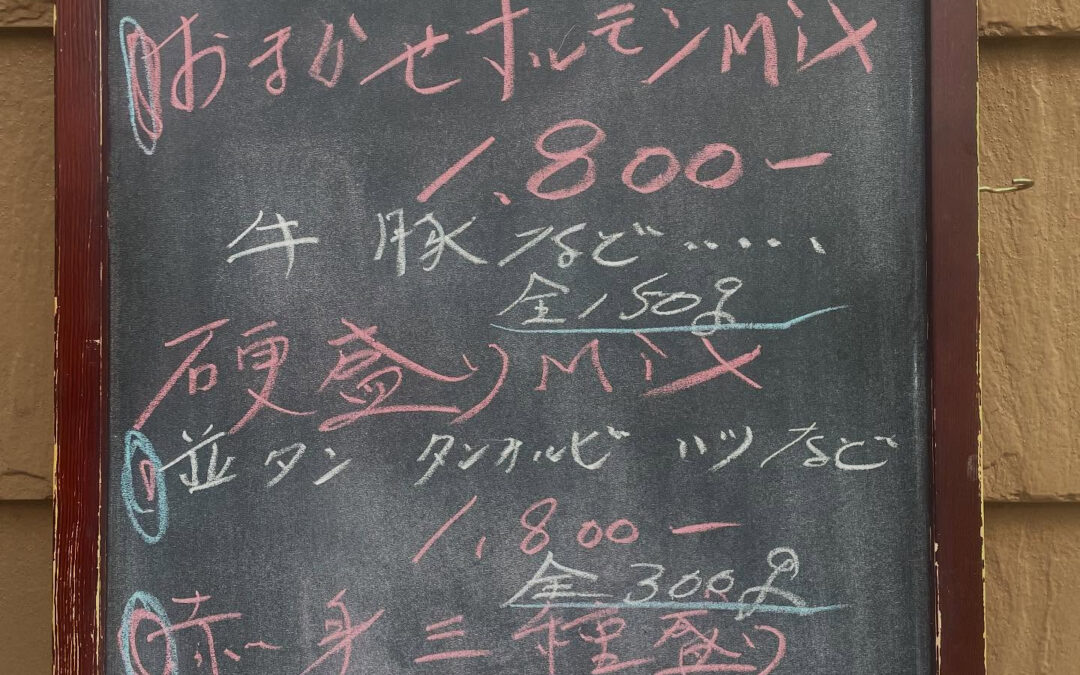 おまかせホルモンMix
1,800ー
牛 豚など……
全150g
硬盛りMix
並タン タンカルビ ハツなど
1,800ー
全300g
赤身三種盛り